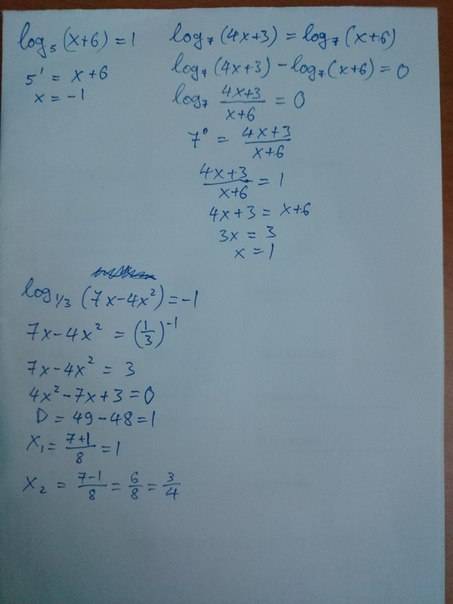 log₅ (x+6) = 1
5¹ = x+6
x = -1
log₇ (4x+3) = log₇ (x+6)
log₇ (4x+3) - log₇ (x+6) = 0
log₇ (4x+3)/(x+6) = 0
7⁰ = (4x+3)/(x+6)
(4x+3)/(x+6) = 1
4x+3 = x+6
3x = 3
x = 1
log₁/₃ (7x-4x²) = -1
7x-4x² = (1/3)⁻¹
7x-4x² = 3
4x²-7x+3=0
D = 49-48=1
x₁ = (7+1)/8 = 1
x₂ = (7-1)/8 = 6/8 = 3/4